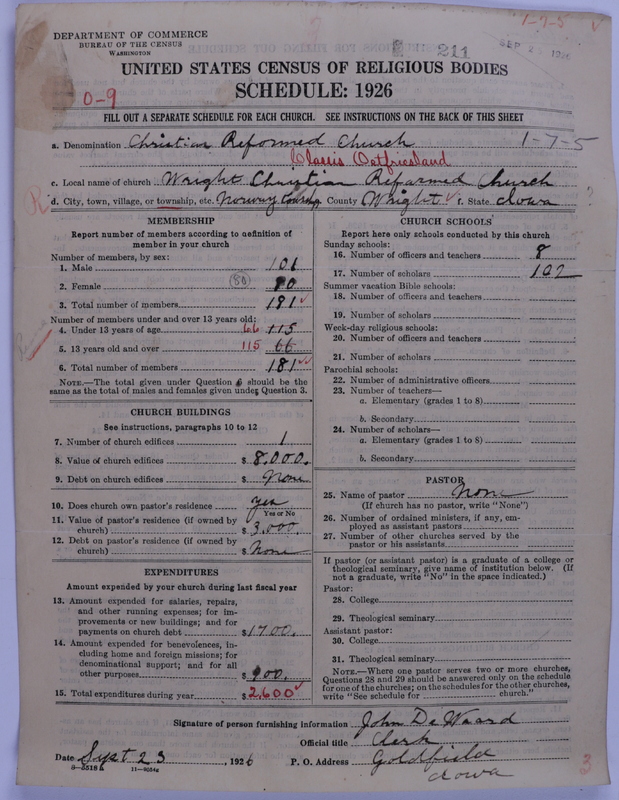 DEPARTMENT OF COMMERCE
BUREAU OF THE CENSUS
WASHINGTON
1-7-5
211
SEP 25 1926
UNITED STATES CENSUS OF RELIGIOUS BODIES
0-9
SCHEDULE: 1926
FILL OUT A SEPARATE SCHEDULE FOR EACH CHURCH. SEE INSTRUCTIONS ON THE BACK OF THIS SHEET
a. Denomination Christian Reformed Church 1-7-5
Classis Ostfriesland
c. Local name of church Wright Christian Reformed Church
d. City, town, village, or township, etc. Norway Township County Wright f. State Iowa ?
R
MEMBERSHIP
Report number of members according to definition of member in your church
Number of members, by sex:
1. Male 101
2. Female (80) 80
3. Total number of members 181
Number of members under and over 13 years old:
4. Under 13 years of age 66 115
5. 13 years old and over 115 66
6. Total number of members 181
NOTE.—The total given under Question 6 should be the
same as the total of males and females given under Question 3.
CHURCH BUILDINGS
See instructions, paragraphs 10 to 12
7. Number of church edifices 1
8. Value of church edifices $ 8,000.
9. Debt on church edifices $ None
10. Does church own pastor's residence yes
Yes or No
11. Value of pastor's residence (if owned by
church) $ 3,000.
12. Debt on pastor's residence (if owned by
church) $ None
EXPENDITURES
Amount expended by your church during last fiscal year
13. Amount expended for salaries, repairs,
and other running expenses; for im-
provements or new buildings; and for
payments on church debt $ 1700.
14. Amount expended for benevolences, in-
cluding home and foreign missions; for
denominational support; and for all
other purposes $ 900.
15. Total expenditures during year $ 2,600
CHURCH SCHOOLS
Report here only schools conducted by this church
Sunday schools:
16. Number of officers and teachers 8
17. Number of scholars 102
Summer vacation Bible schools:
18. Number of officers and teachers
19. Number of scholars
Week-day religious schools:
20. Number of officers and teachers
21. Number of scholars
Parochial schools:
22. Number of administrative officers
23. Number of teachers—
a. Elementary (grades 1 to 8)
b. Secondary
24. Number of scholars—
a. Elementary (grades 1 to 8)
b. Secondary
PASTOR
25. Name of pastor None
(If church has no pastor, write "None")
26. Number of ordained ministers, if any, em-
ployed as assistant pastors
27. Number of other churches served by the
pastor or his assistants
If pastor (or assistant pastor) is a graduate of a college or
theological seminary, give name of institution below. (If
not a graduate, write "No" in the space indicated.)
Pastor:
28. College
29. Theological seminary
Assistant pastor:
30. College
31. Theological seminary
NOTE.—Where one pastor serves two or more churches,
Questions 28 and 29 should be answered only on the schedule
for one of the churches; on the schedules for the other churches,
write "See schedule for church."
Signature of person furnishing information John De Waard
Official title Clerk
Date Sept 23, 1926 P. O. Address Goldfield
Iowa
3
11—9034a